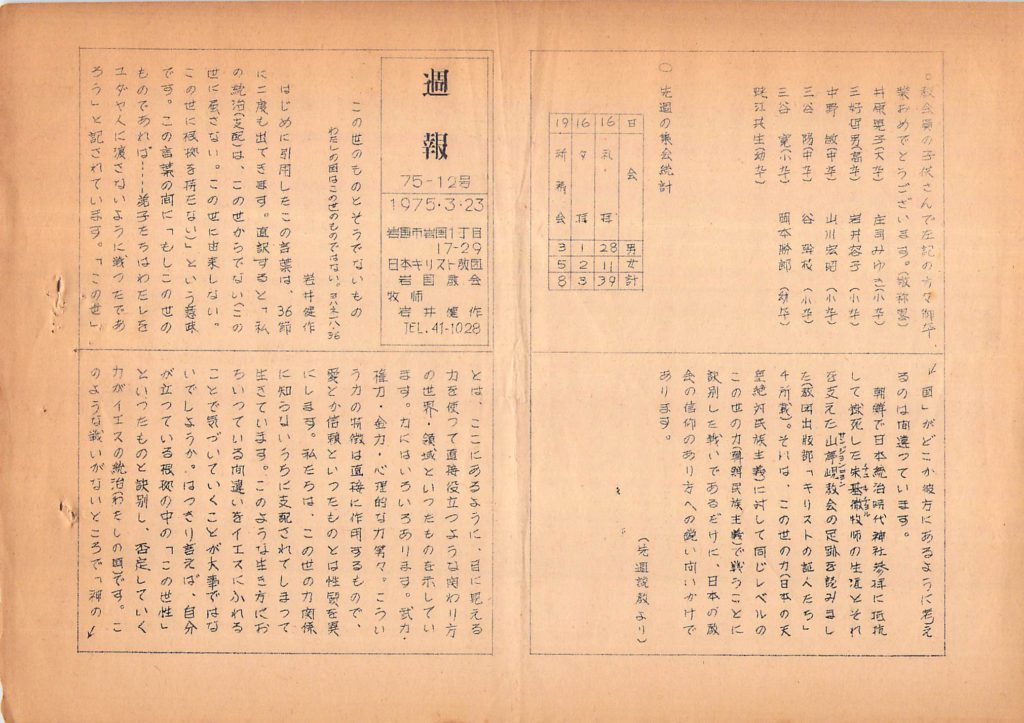 週報
75-12号
1975・3・23
岩国市岩国1丁目
17-29
日本キリスト教団
岩国教会
牧師
岩井健作
TEL.41-1028
この世のものとそうでないもの
わたしの国はこの世のものではない。ヨハネ一八36
岩井健作
はじめに引用したこの言葉は、36節
に二度も出てきます。直訳すると「私
の統治(支配)は、この世からでない(この
世に属さない。この世に由来しない。
この世に根拠を持たない)」という意味
です。この言葉の間に「もしこの世の
ものであれば……弟子たちはわたしを
ユダヤ人に渡さないように戦ったであ
ろう」と記されています。「この世」
とは、ここにあるように、目に見える
力を使って直接役立つような関わり方
の世界・領域といったものを示してい
ます。力にはいろいろあります。武力・
権力・金力・心理的な力等々。こうい
う力の特徴は直接に作用するもので、
愛とか信頼といったものとは性質を異
にします。私たちは、この世の力関係
に知らないうちに支配されてしまって
生きています。このような生き方にお
ちいっている間違いをイエスにふれる
ことで気づいていくことが大事ではな
いでしょうか。はっきり言えば、自分
が立っている根拠の中の「この世性」
といったものと訣別し、否定していく
力がイエスの統治(わたしの国)です。こ
のような戦いがないところで「神の↙
↙国」がどこか彼方にあるように考え
るのは間違っています。
朝鮮で日本統治時代神社参拝に抵抗
して獄死した朱基徹牧師の生涯とそれ
を支えた山亭峴教会の足跡を読みまし
た(教団出版部「キリストの証人たち」
4所載)。それは、この世の力(日本の天
皇絶対民族主義)に対して同じレベルの
この世の力(朝鮮民族主義)で戦うことに
訣別した戦いであるだけに、日本の教
会の信仰のあり方への鋭い問いかけで
あります。
(先週説教より)
○教会員の子供さんで左記の方々御卒
業おめでとうございます。(敬称略)
井原晃子(大卒) 庄司みゆき(小卒)
三好(高卒) 岩井容子(小卒)
中野 敏(中卒) 山川宏昭(小卒)
三谷 陽(中卒) 谷 (小卒)
三谷 寛(小卒) 岡本勝郎(幼卒)
共生(幼卒)
○ 先週の集会統計
日 会 男 女 計
16 礼拝 28 11 39
16 夕拝 1 2 3
19 祈祷会 3 5 8